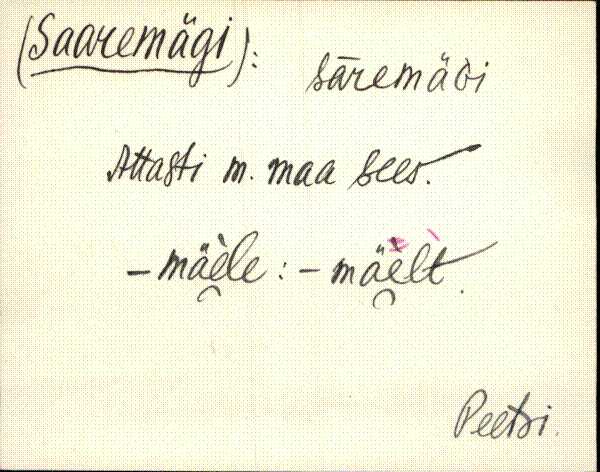 (Saaremägi): sāremäɢi
Attasti m. maa sees.
– mäèle : – mäèlt.
Peetri.